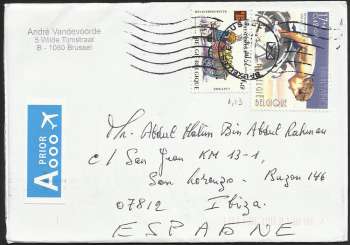 André Vandevoorde
5 Wilde Tijmstraat
B - 1080 Brussel
BELGIQUE
A PRIOR
Mr. Abdul Halim Bin Abdul Rahman
C/ San Jean KM 13-1,
San Lorenzo - Buzon 146
07812 Ibiza
ESPAGNE